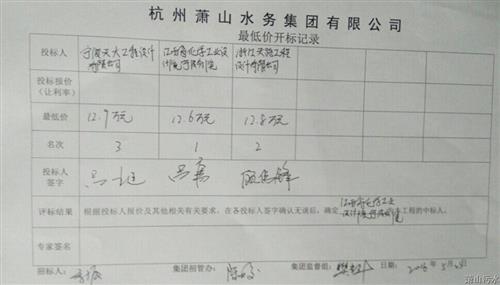 杭州萧山水务集团有限公司
最低价开标记录
投标人 宁波天大工程设计有限公司 江西省化学工业设计院 浙江天越工程设计有限公司
投标报价
(让利率)
最低价 12.9万元 12.6万元 12.8万元
名次 3 1 2
投标人
签字
评标结果 根据投标人报价及其他相关有关要求，在各投标人签字确认无误后，确定 江西省化学工业设计院 为本工程的中标人。
专家签名
招标人: 集团招管办: 集团监督组: 日期:
萧山污水